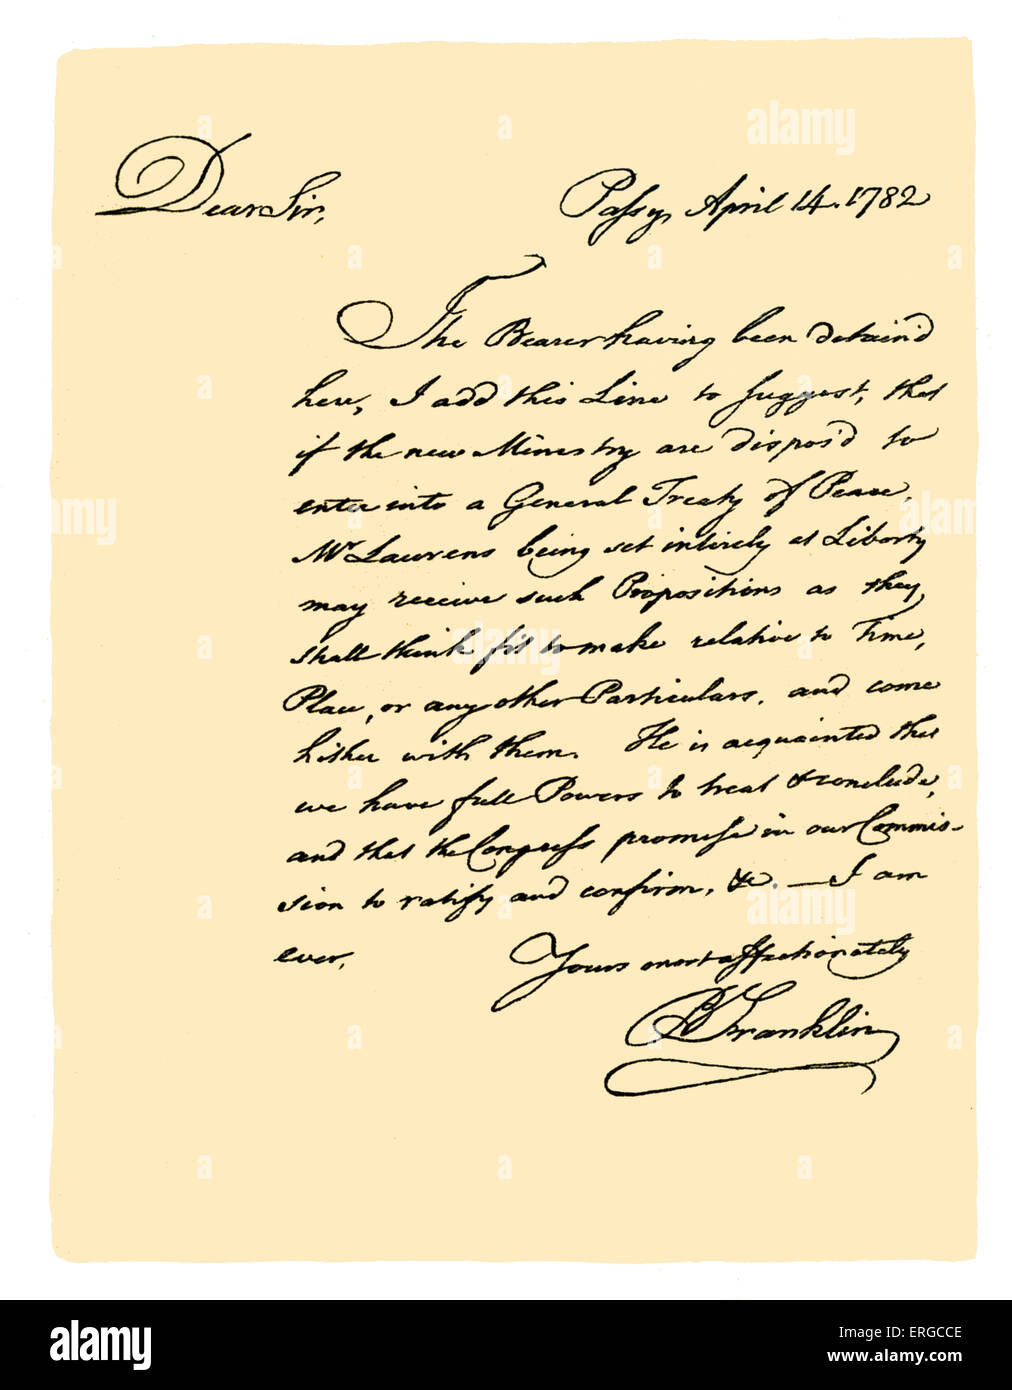 Dear Sir,
Passy, April 14. 1782
The Bearer having been detain'd
here, I add this Line to suggest, that
if the new Ministry are dispos'd to
enter into a General Treaty of Peace,
Mr Laurens being set intirely at Liberty
may receive such Propositions as they
shall think fit to make relative to Time,
Place, or any other Particulars, and come
hither with them. He is acquainted that
we have full Powers to treat & conclude,
and that the Congress promise in our Commis-
sion to ratify and confirm, &c. — I am
ever,
Yours most affectionately
B Franklin
alamy
Image ID: ERGCCE
www.alamy.com